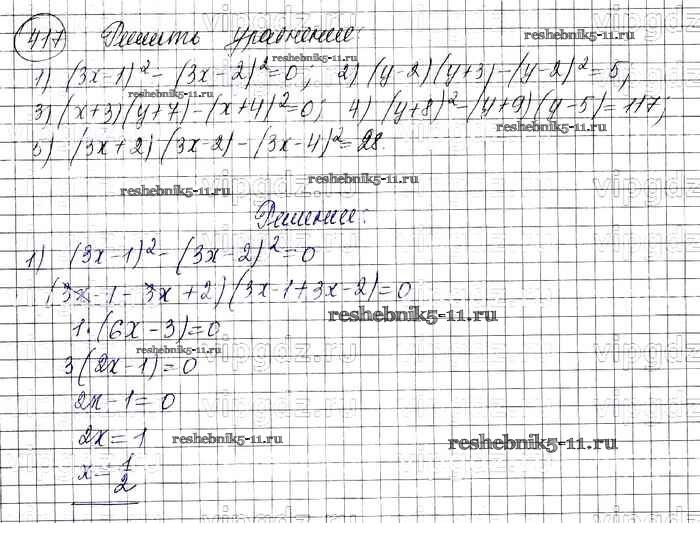 417 Решить уравнение:
reshebnik5-11.ru
reshebnik5-11.ru
1) (3x-1)² - (3x-2)² = 0; 2) (y-2)(y+3) - (y-2)² = 5;
reshebnik5-11.ru
3) (x+3)(y+7) - (x+4)² = 0; 4) (y+8)² - (y+9)(y-5) = 117;
reshebnik5-11.ru
5) (3x+2)(3x-2) - (3x-4)² = 28.
reshebnik5-11.ru
reshebnik5-11.ru
vipgdz.ru
Решение:
1) (3x-1)² - (3x-2)² = 0
(3x-1-3x+2)(3x-1+3x-2) = 0
reshebnik5-11.ru
1·(6x-3) = 0
reshebnik5-11.ru
vipgdz.ru
3(2x-1) = 0
2x-1 = 0
2x = 1
reshebnik5-11.ru
reshebnik5-11.ru
x = 1/2
vipgdz.ru